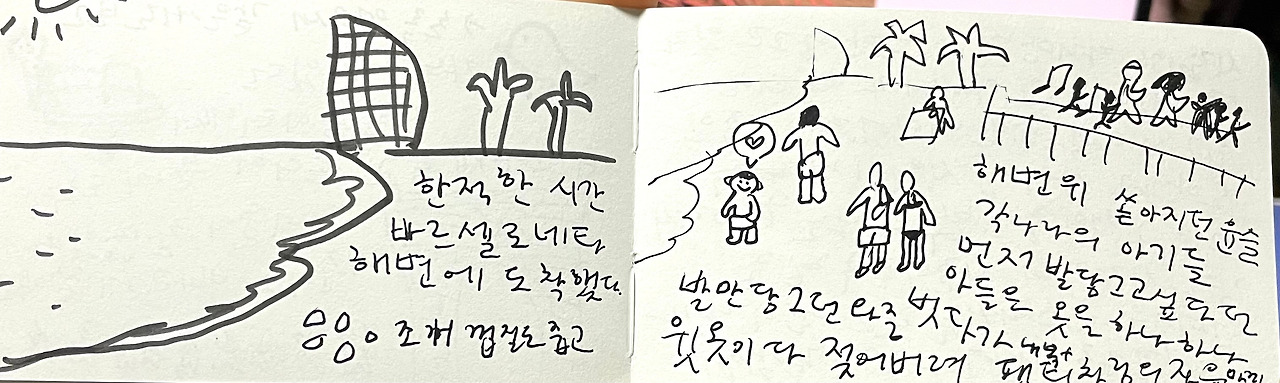 한적한 시간
바르셀로네타
해변에 도착했다.
조개 껍질도 줍고
해변위 쏟아지던 윤슬
각나라의 아기들
먼저 발담그고싶다던
아들은 옷을 하나하나
발만담그던 와중 벗다가
윗옷이 다 젖어버려